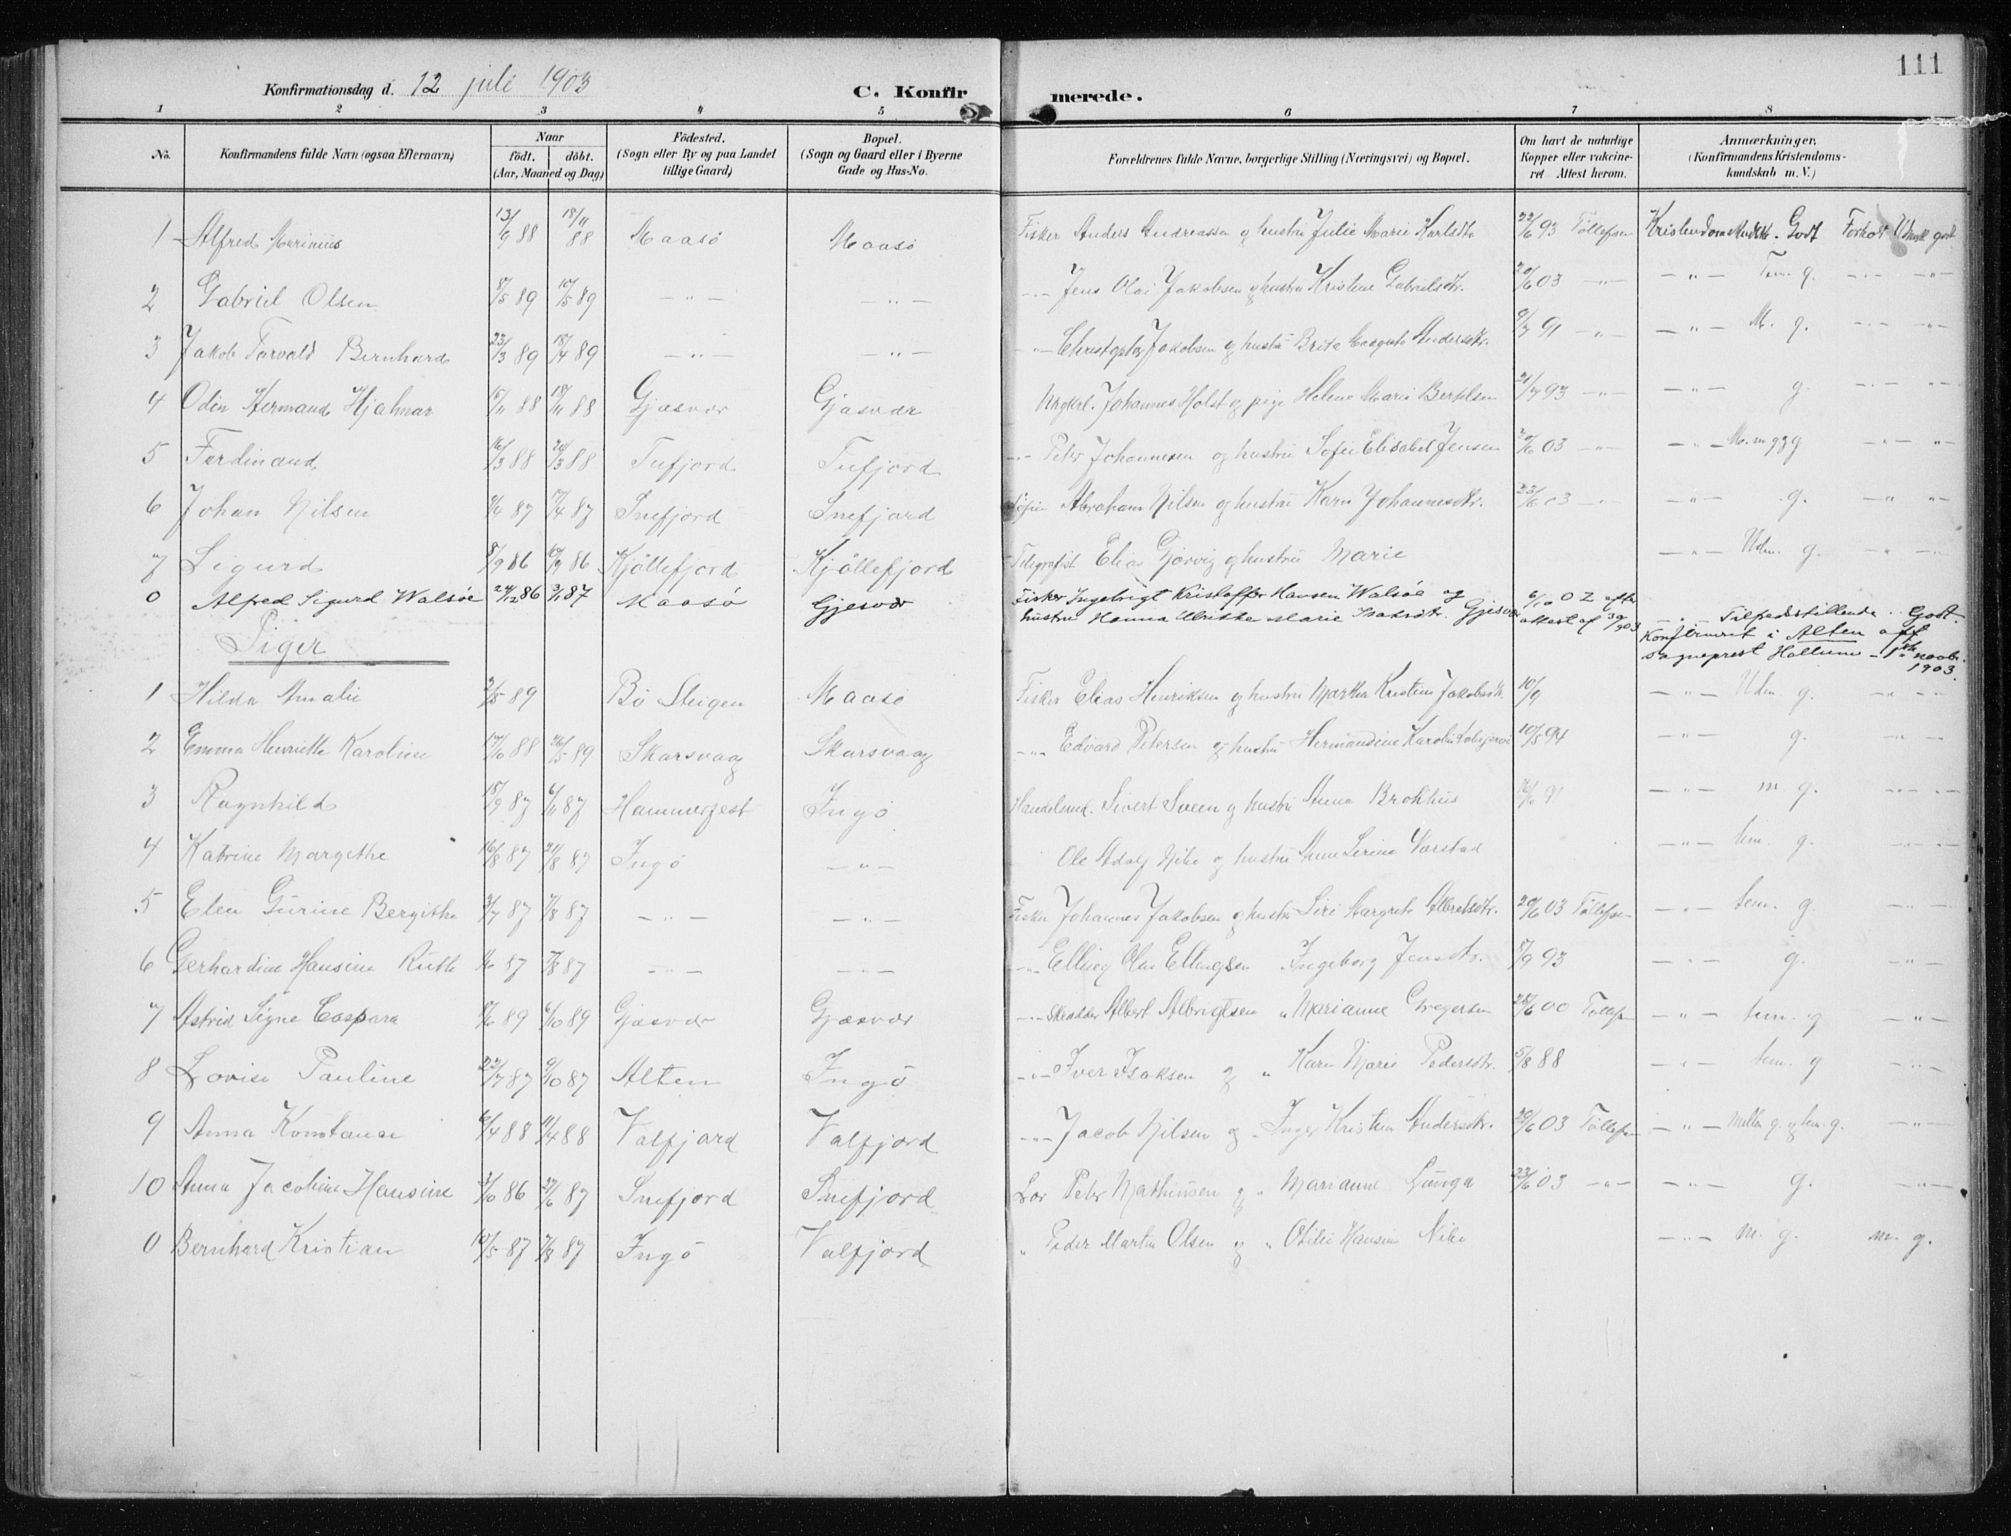 111
Konfirmationsdag d. 12 juli 1903 C. Konfirmerede.
1 2 3 4 5 6 7 8
No. Konfirmandens fulde Navn (ogsaa Efternavn) Naar født. døbt. (Aar, Maaned og Dag) Fødested. (Sogn eller By og paa Landet tillige Gaard) Bopæl. (Sogn og Gaard eller i Byerne Gade og Hus-No. Forældrenes fulde Navne, borgerlige Stilling (Næringsvei) og Bopæl. Om havt de naturlige Kopper eller vakcineret Attest herom. Anmærkninger. (Konfirmandens Kristendomskundskab m. V.)
1 Alfred Marinius 13/9 88 18/11 88 Maasø Maasø Fisker Anders Andreassen og hustru Julie Marie Karlsdtr 22/6 93 Tollefsen Godt Forhold
2 Gabriel Olsen 8/5 89 10/5 89 -"- -"- -"- Jens Olai Jakobsen og hustru Kristine Gabrielsdtr. 20/6 03 -"- -"- Tem. g. -"- -"-
3 Jakob Torvald Bernhard 23/3 89 18/4 89 -"- -"- -"- Jakobsen og hustru Andersdtr. 9/7 91 -"- -"- M. g. -"- -"-
4 Odin Hermand Hjalmar 15/11 88 18/11 88 Gjæsvær Gjæsvær Johannes Holst og pige Helene Marie Bertelsen 21/7 93 -"- -"- g. -"- -"-
5 Ferdinand 16/3 88 20/3 88 Tufjord Tufjord -"- Peter Johannesen og hustru Sofie Elisabet Jensen 20/6 03 -"- -"- -"- -"-
6 Johan Nilsen 9/4 87 17/4 87 Snefjord Snefjord Abraham Nilsen og hustru Karen Johannesdtr. 23/6 03 -"- -"- g. -"- -"-
7 Sigurd 8/9 86 86 Kjøllefjord Kjøllefjord Telegrafist Elias Gjørvig og hustru Marie -"- Udm. g. -"- -"-
0 Alfred Sigurd Walsøe 24/12 86 3/1 87 Maasø Gjesvær Fisker Ingebrigt Kristoffer Hansen Walsøe og 6/10 02 efter
hustru Hanna Ulrikke Marie Isaksdtr. Gjesvær attest af 30/9 03 -"- Tilfredsstillende. Godt.
Piger Konfirmeret i Alten aff
sogneprest Hallum 1ste novbr.
1903.
1 Hilda Amalie 2/5 89 Bø Steigen Maasø Fisker Elias Henriksen og hustru Martha Kristine Jakobsdtr. 10/9 -"- Udm. g. -"- -"-
2 Emma Henriette Karoline 17/10 88 26/5 89 Skarsvaag Skarsvaag -"- Edvard Petersen og hustru Hermandine Karoline 10/8 94 -"- g. -"- -"-
3 Ragnhild 15/9 87 6/11 87 Hammerfest Ingø Handelsmd. Sivert Sveen og hustru Anna Brokhus 91 -"- m. g. -"- -"-
4 Katrine Margethe 16/8 87 21/8 87 Ingø -"- Ole Adolf Nibe og hustru Anne Serine Værstad -"- tem. g. -"- -"-
5 Elen Gurine Bergithe 3/7 87 7/8 87 -"- -"- Fisker Johannes Jakobsen og hustru Siri Margrete Albretsdtr. 20/6 03 Tollefsen -"- tem. g. -"-
6 Gerhardine Hansine Ruth 87 7/8 87 -"- -"- -"- Elling Olai Ellingsen Ingeborg Jensdtr. 5/9 93 -"- g. -"-
7 Astrid Signe Caspara 89 6/10 89 Gjæsvær Gjæsvær -"- Albert Albrigtsen " Marianne Gregersen 28/6 00 Tollefsen -"- tem. g -"-
8 Lovise Pauline 22/7 87 9/10 87 Alten Ingø -"- Iver Isaksen og " Karen Marie Pedersdtr. 5/8 88 -"- tem. g -"-
9 Anna Konstanse 6/4 88 11/4 88 Valfjord Valfjord -"- Jacob Nilsen og " Inger Kristine Andersdtr. 20/6 03 Tollefsen -"- mellem g. og tem. g. -"-
10 Anna Jacobine Hansine 3/10 86 87 Snefjord Snefjord Peter Mathiusen og " Marianne 23/6 03 -"- -"- g. -"-
0 Bernhard Kristian 10/5 87 7/8 87 Ingø Valfjord " Peder Martin Olsen og " Otilie Hansine Nibe -"- m. g. m. g.